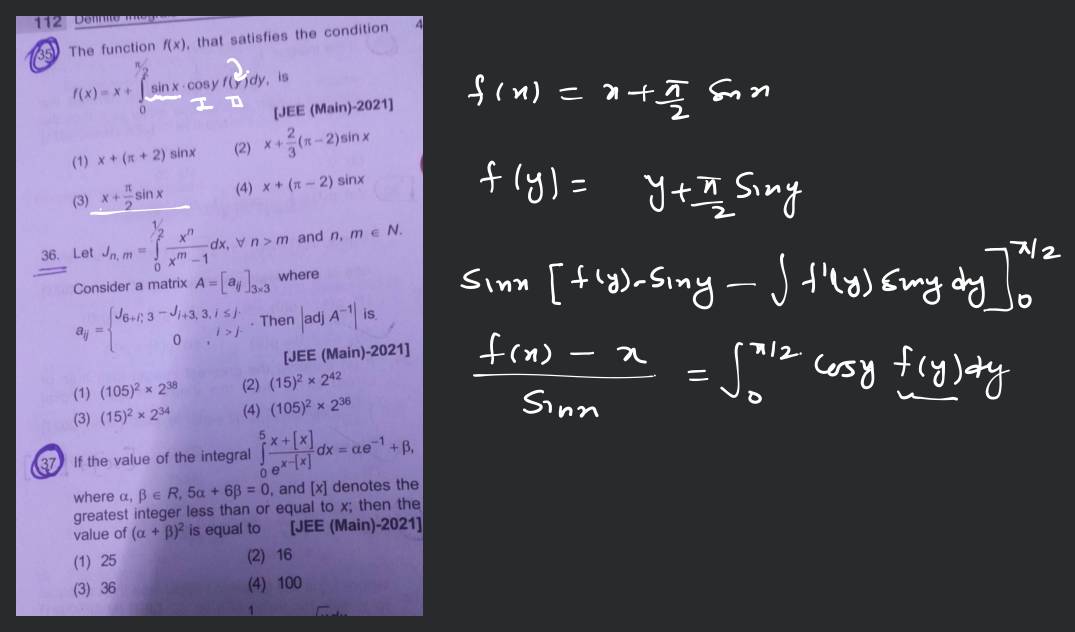 112 Definite Integ
4
35. The function f(x), that satisfies the condition
f(x) = x + ∫₀^{π/2} sin x · cos y f(y) dy, is
I II
[JEE (Main)-2021]
(1) x + (π + 2) sinx
(2) x + 2/3 (π – 2) sin x
(3) x + π/2 sin x
(4) x + (π – 2) sinx
36. Let J_{n, m} = ∫₀^{1/2} xⁿ/(x^m – 1) dx, ∀ n > m and n, m ∈ N.
Consider a matrix A = [a_{ij}]_{3×3} where
a_{ij} = { J_{6+i, 3} – J_{i+3, 3}, i ≤ j
0 , i > j . Then |adj A^{–1}| is
[JEE (Main)-2021]
(1) (105)² × 2^{38}
(2) (15)² × 2^{42}
(3) (15)² × 2^{34}
(4) (105)² × 2^{36}
37. If the value of the integral ∫₀⁵ (x + [x])/e^{x–[x]} dx = αe^{–1} + β,
where α, β ∈ R, 5α + 6β = 0, and [x] denotes the
greatest integer less than or equal to x; then the
value of (α + β)² is equal to [JEE (Main)-2021]
(1) 25
(2) 16
(3) 36
(4) 100
1
f(x) = x + π/2 Sin x
f(y) = y + π/2 Siny
Sinx [f(y)·Siny – ∫ f'(y) Siny dy]₀^{π/2}
(f(x) – x)/Sinx = ∫₀^{π/2} cosy f(y)dy